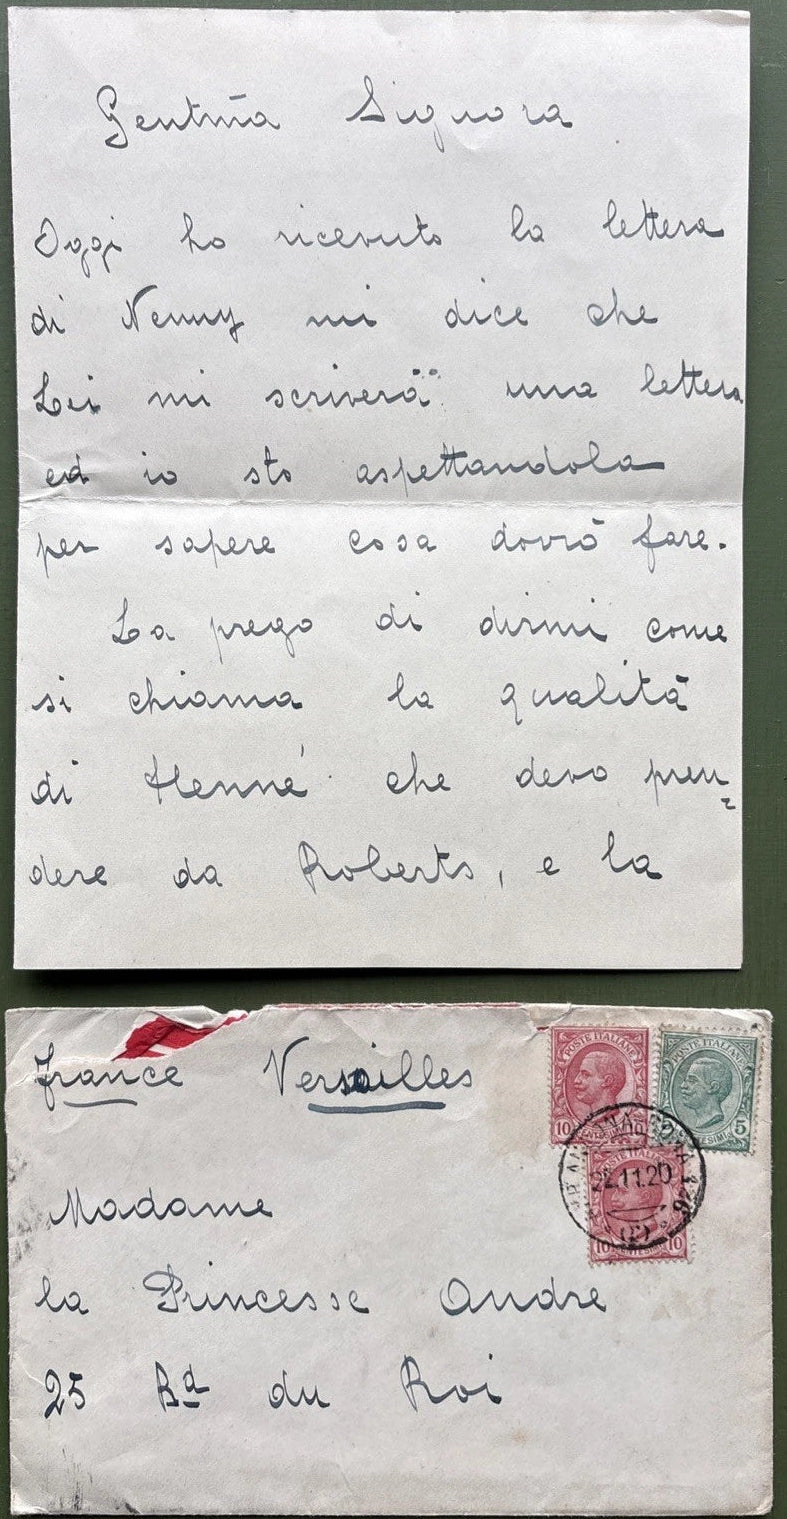 Gentma Signora
Oggi ho ricevuto la lettera
di Nenny mi dice che
Lei mi scriverà una lettera
ed io sto aspettandola
per sapere cosa dovrò fare.
La prego di dirmi come
si chiama la qualità
di Henné che devo pren=
dere da Roberts, e la
France Versailles
POSTE ITALIANE
10
POSTE ITALIANE
CENTESIMI 5
24.11.20
10 CENTESIMI 10
Madame
la Princesse Andre
25 Bd du Roi